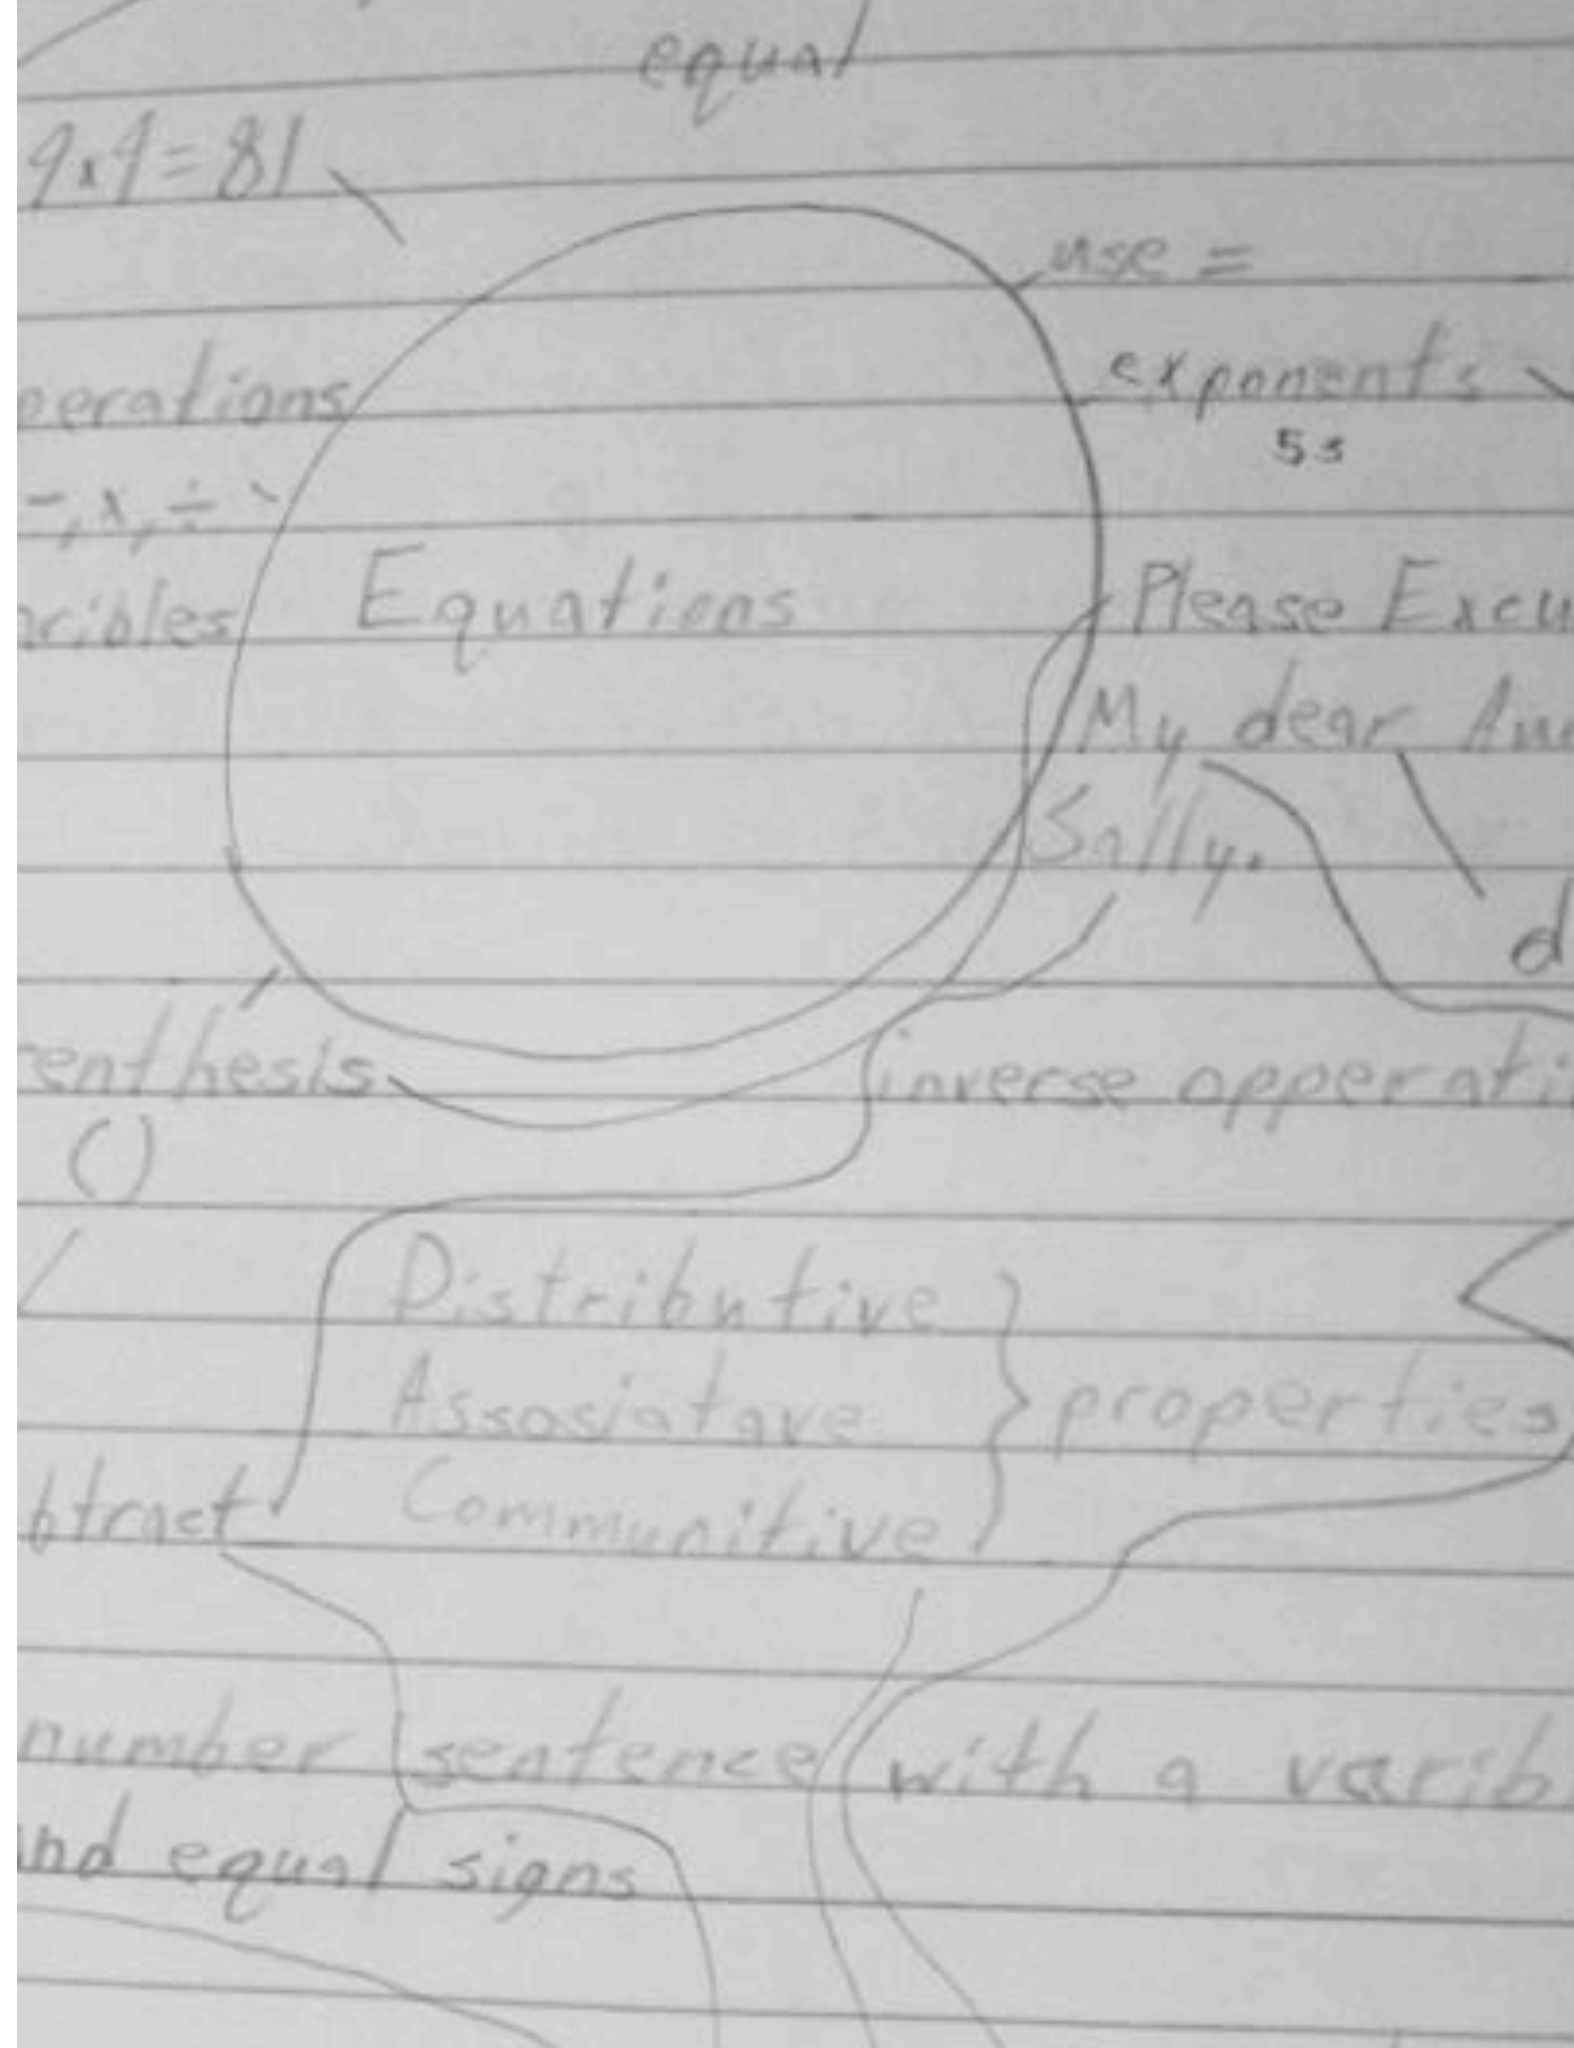 equal
9x9=81
use =
perations
exponents
5s
-, x, ÷
Equations
aribles
Please Excu
My dear Aun
Sally.
d
renthesis
inverse opperati
()
Distributive
Assosiatave
properties
Communitive
btract
number sentence with a varib
and equal signs